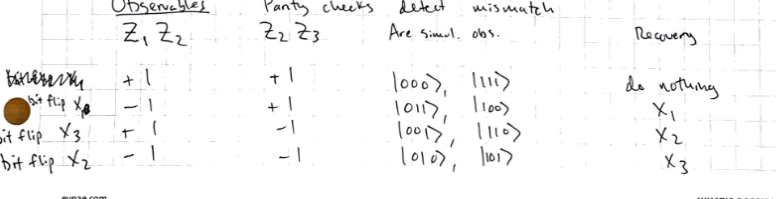 Observables Parity checks detect mismatch
Z₁ Z₂ Z₂ Z₃ Are simul. obs. Recovery
+1 +1 |000⟩, |111⟩ do nothing
bit flip X -1 +1 |011⟩, |100⟩ X₁
bit flip X₃ +1 -1 |001⟩, |110⟩ X₂
bit flip X₂ -1 -1 |010⟩, |101⟩ X₃